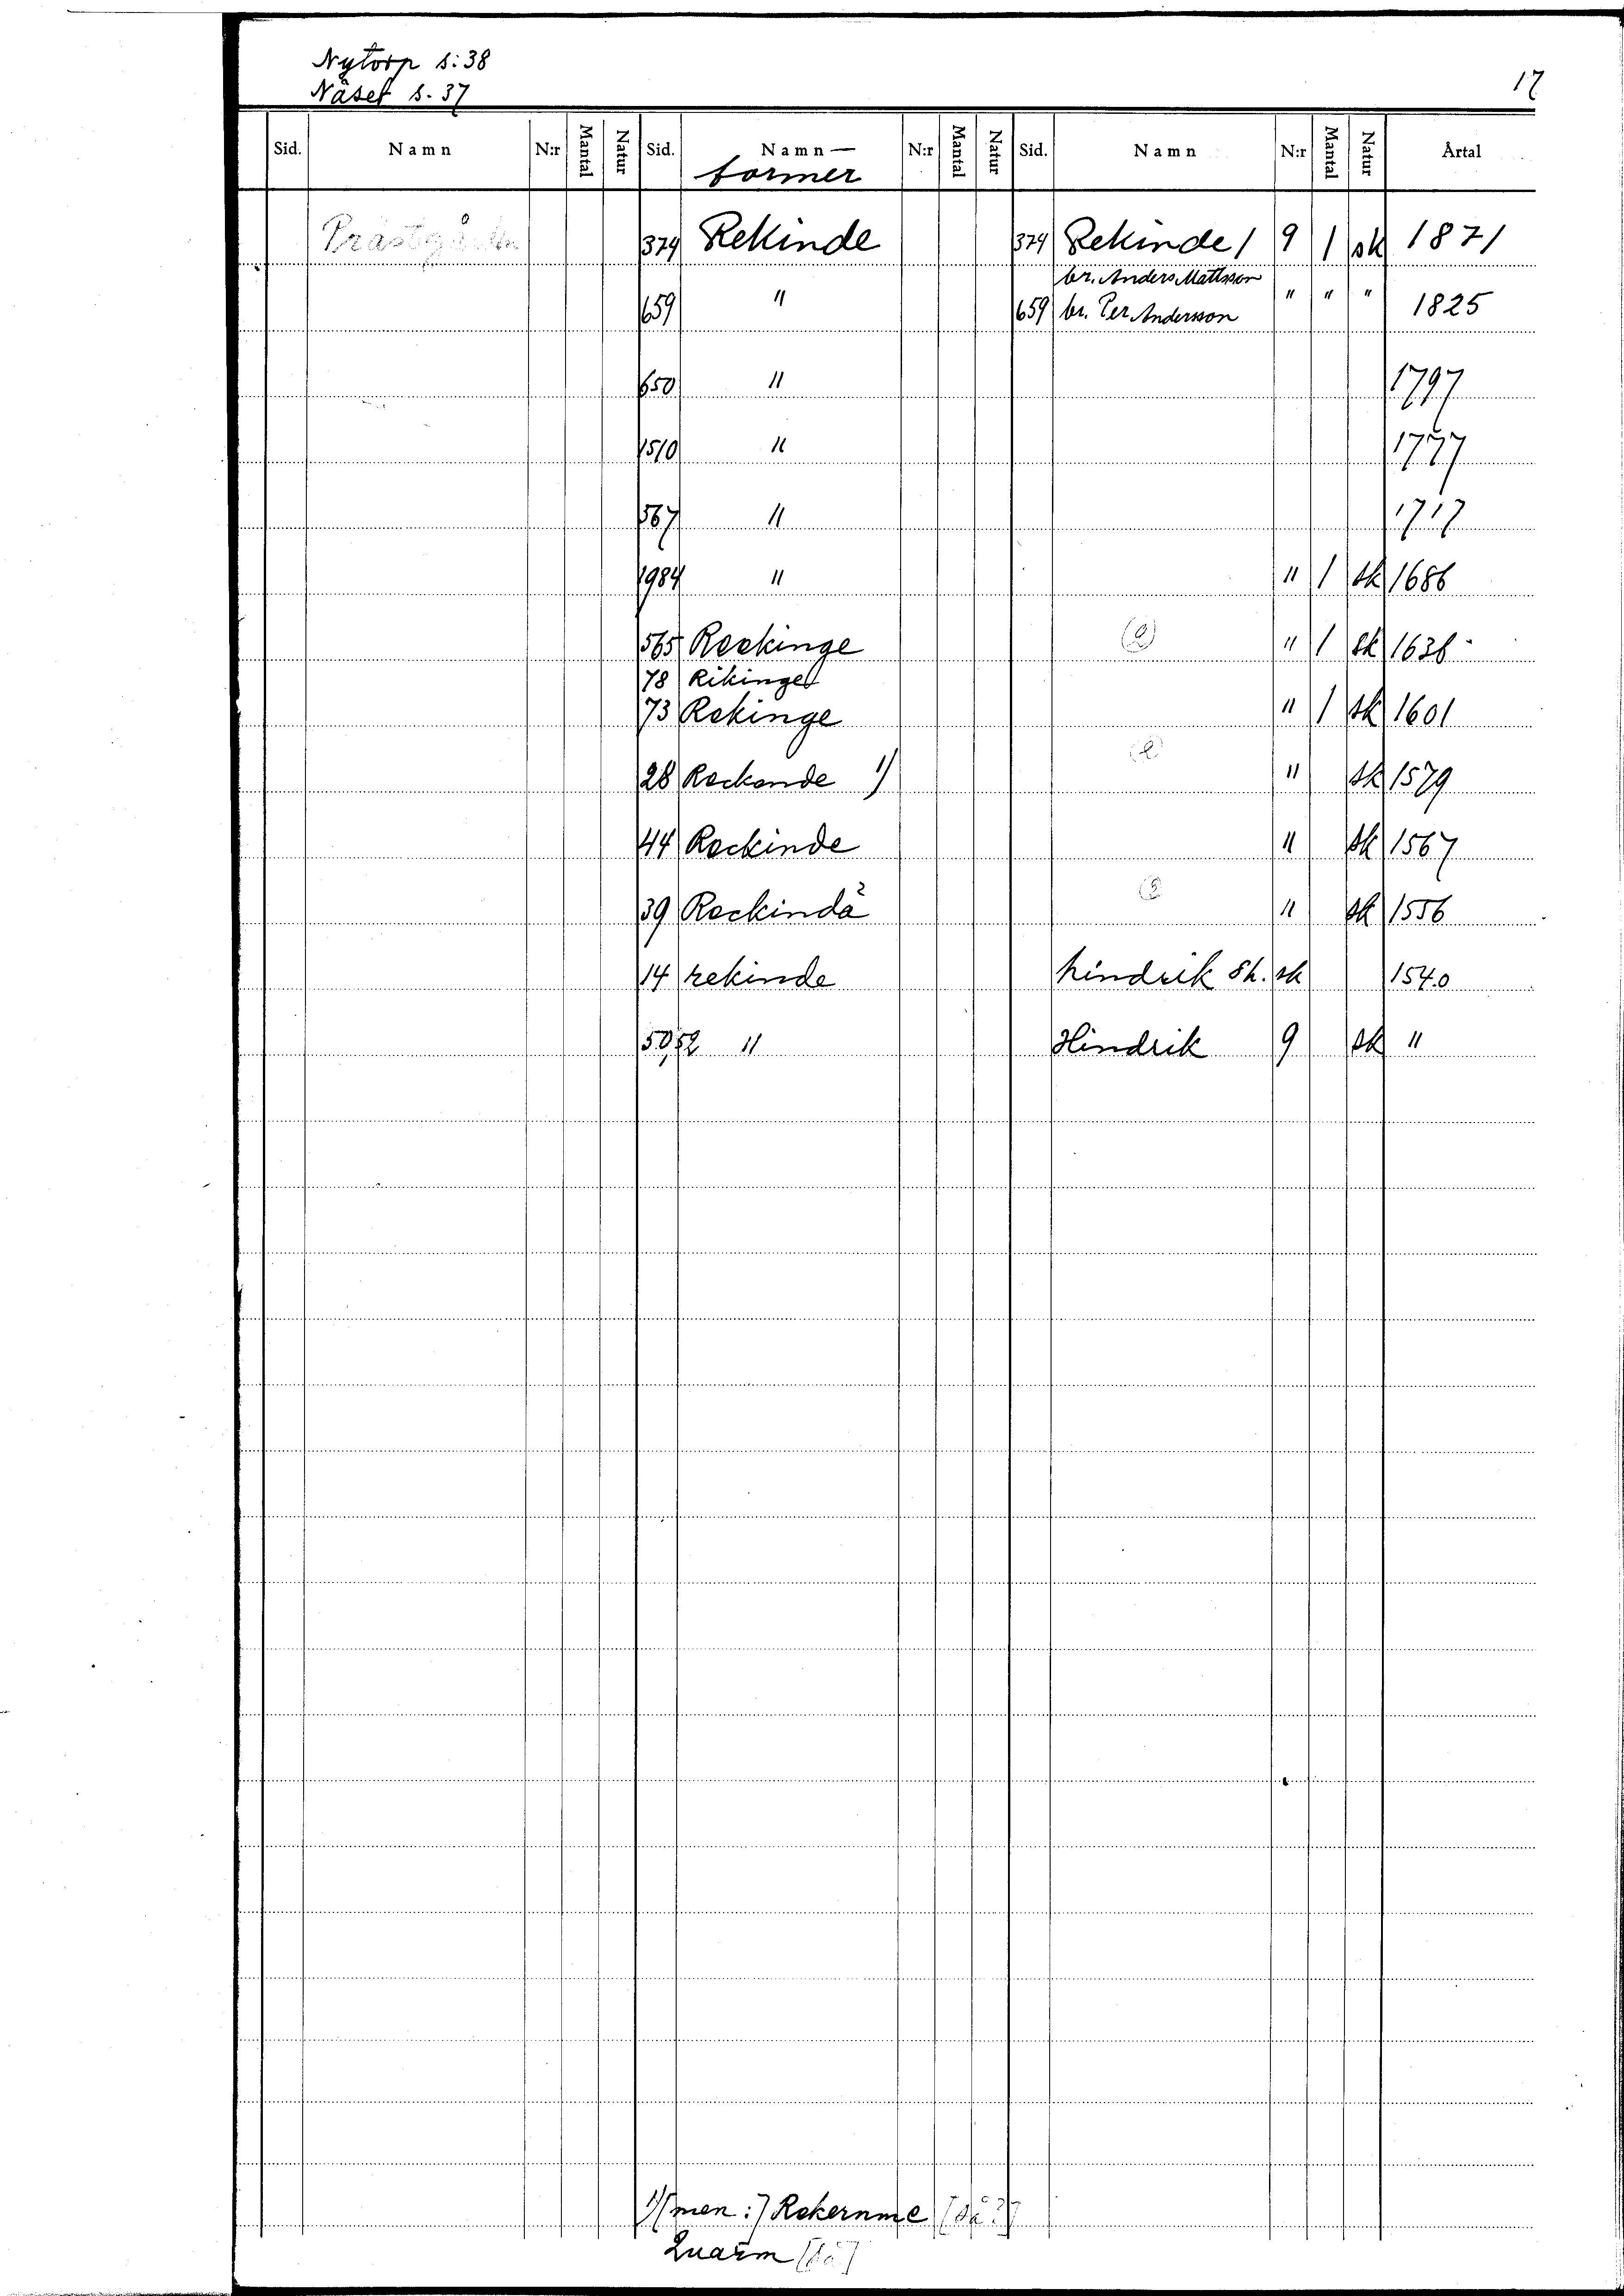 Nytorp s: 38
Näset s. 37
17
Sid. Namn N:r Mantal Natur Sid. Namn— N:r Mantal Natur Sid. Namn N:r Mantal Natur Årtal
former
Prästgården 374 Rekinde 374 Rekinde 1 9 1 sk 1871
br. Anders Mattsson
659 " 659 br. Per Andersson " " " 1825
650 " 1797
1510 " 1777
567 " 1717
1984 " " 1 sk 1686
565 Reekinge " 1 sk 1638
78 Rikinge
73 Rekinge " 1 sk 1601
28 Reckende 1) " sk 1579
44 Reckinde " sk 1567
39 Reckindä " sk 1556
14 rekinde hindrik sk. sk 1540
50,52 " Hindrik 9 sk "
1) [men:] Rekernme [så?]
Quarm [så]